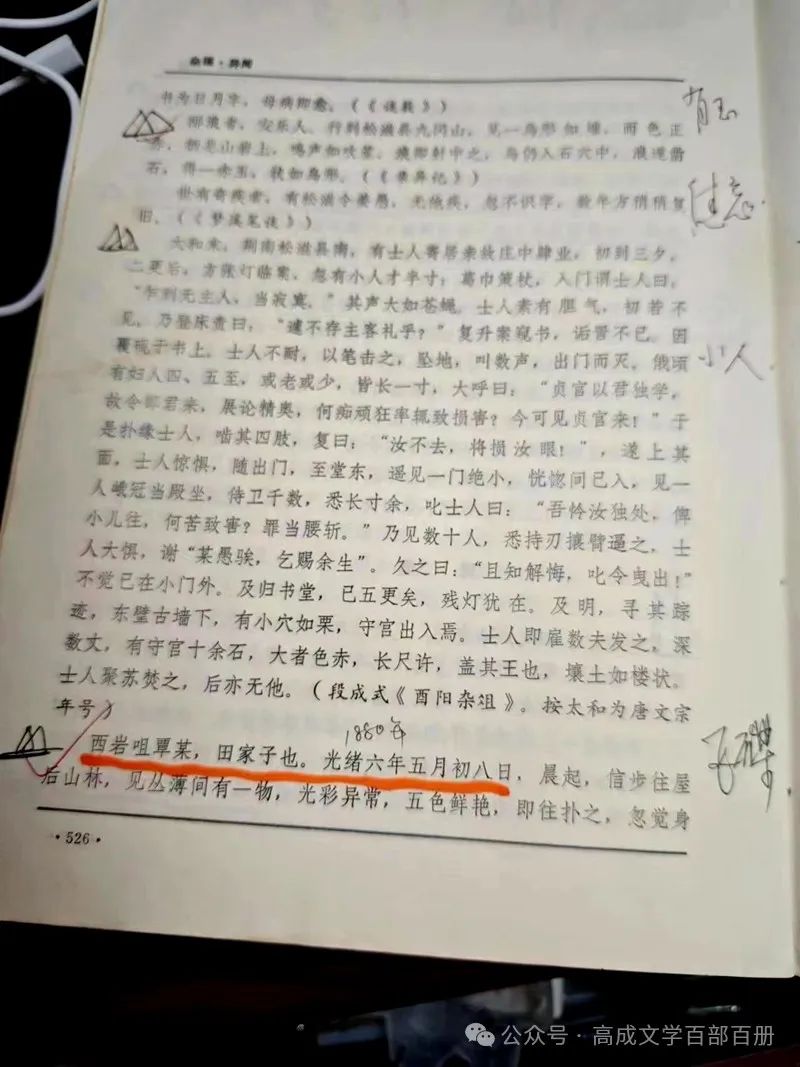 杂缀·异闻
书为日月字，母病即愈。（《谈薮》）
那浪者，安乐人，行到松滋县九冈山，见一鸟形如雉，而色正
赤，栖息山岩上，鸣声如吹笙。浪即射中之，鸟仍入石穴中，浪遂凿
石，得一赤玉，状如鸟形。（《集异记》）
世有奇疾者，有松滋令姜愚，无他疾，忽不识字，数年方稍稍复
旧。（《梦溪笔谈》）
大和末，荆南松滋县南，有士人寄居亲故庄中肄业，初到三夕，
二更后，方张灯临案，忽有小人才半寸；葛巾策杖，入门谓士人曰，
“乍到无主人，当寂寞。”其声大如苍蝇。士人素有胆气，初若不
见。乃登床责曰，“遽不存主客礼乎？”复升案窥书，诟詈不已。因
覆砚于书上。士人不耐，以笔击之，坠地，叫数声，出门而灭。俄顷
有妇人四、五至，或老或少，皆长一寸，大呼曰：“贞官以君独学，
故令郎君来，展论精奥，何痴顽狂率辄致损害？今可见贞官来！”于
是扑缘士人，啮其四肢，复曰：“汝不去，将损汝眼！”，遂上其
面，士人惊惧，随出门，至堂东，遥见一门绝小，恍惚间已入，见一
人峨冠当殿坐，侍卫千数，悉长寸余，叱士人曰：“吾怜汝独处，俾
小儿往，何苦致害？罪当腰斩。”乃见数十人，悉持刃攘臂逼之。士
人大惧，谢“某愚騃，乞赐余生”。久之曰：“且知解悔，叱令曳出！”
不觉已在小门外。及归书堂，已五更矣，残灯犹在。及明，寻其踪
迹，东壁古墙下，有小穴如栗，守宫出入焉。士人即雇数夫发之，深
数丈，有守宫十余石，大者色赤，长尺许，盖其王也，壤土如楼状。
士人聚苏焚之，后亦无他。（段成式《酉阳杂俎》。按太和为唐文宗
年号）
1880年
西岩咀覃某，田家子也。光绪六年五月初八日，晨起，信步往屋
后山林，见丛薄间有一物，光彩异常，五色鲜艳，即往扑之，忽觉身
·526·
小人
公众号·高成文学百部百册